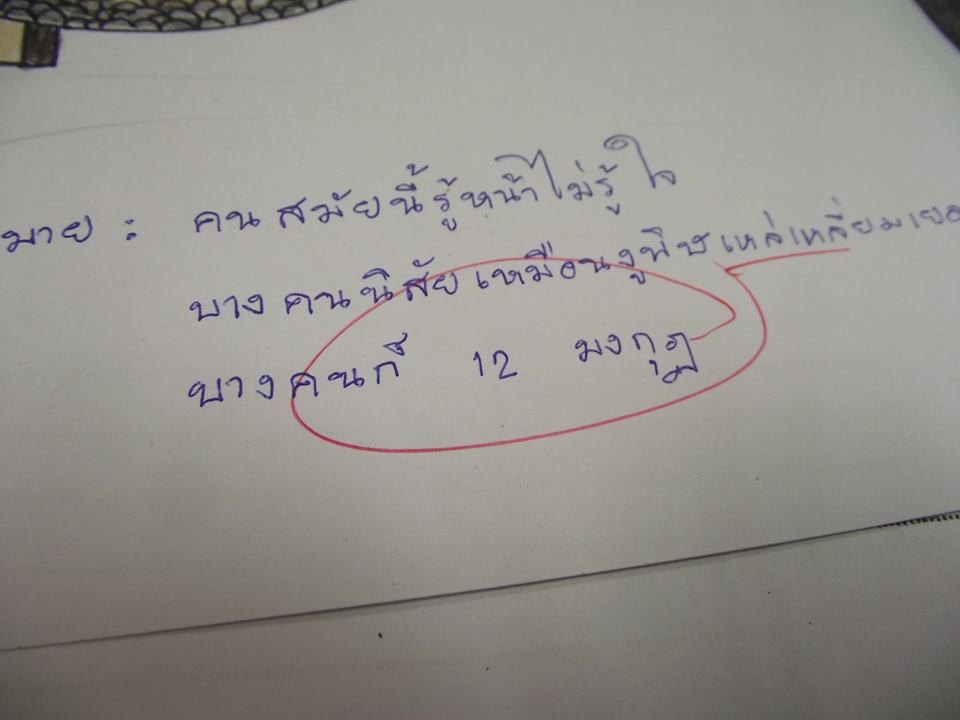 มาย : คนสมัยนี้รู้หน้าไม่รู้ใจ
บางคนนิสัยเหมือนงูพิษ เหล่เหลี่ยมเยอ
บางคนก็ 12 มงกุฎ